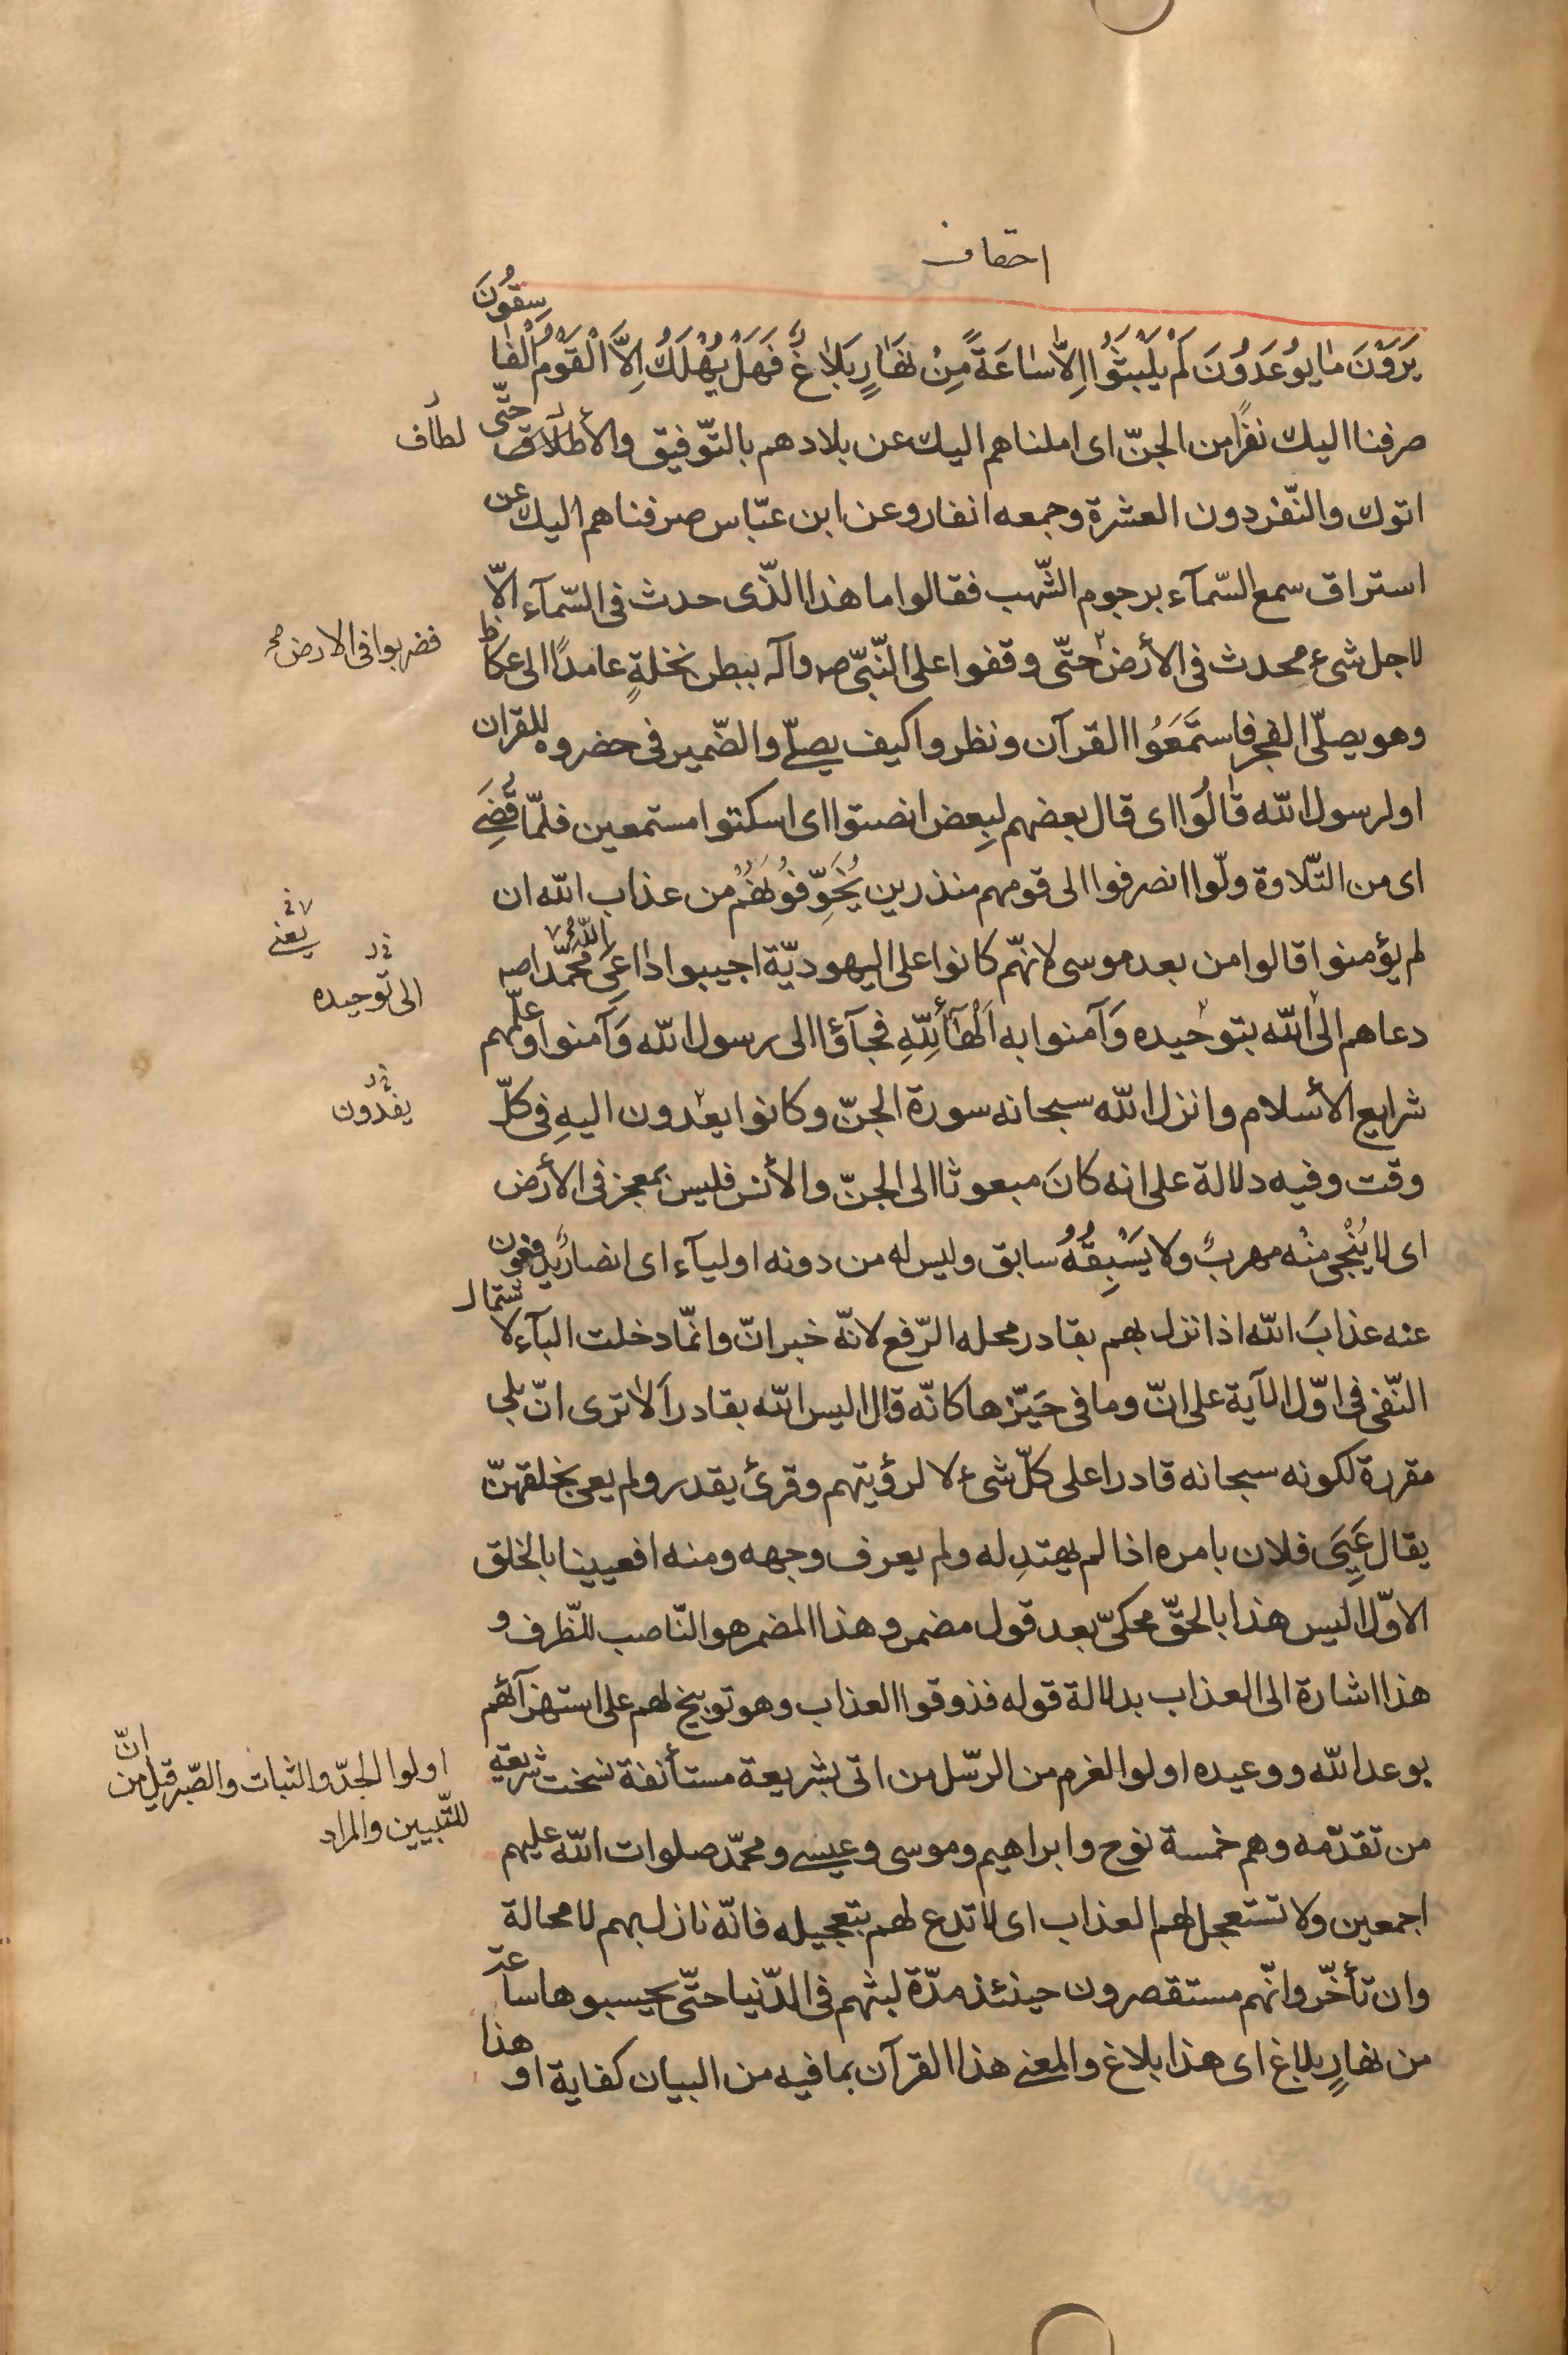 احقاف
يَرَوْنَ مٰا يوُعَدوُنَ لَمْ يَلْبَثوُا اِلاّٰ سٰاعَةً مِنْ نَهٰارٍ بَلاٰغٌ فَهَلْ يُهْلَكُ اِلاَّ الْقَوْمُ الْفٰا
سِقوُنَ
صرفنا اليك نفرًا من الجنّ اى املناهم اليك عن بلادهم بالتّوفيق والأطلاق حتّى
لطاف
اتوك والنّفر دون العشرة وجمعه انفار وعن ابن عبّاس صرفناهم اليك عن
استراق سمع السّمآء برجوم الشّهب فقالوا ما هذا الذّى حدث فى السّمآء الاّ
لاجل شىء محدث فى الأرض حتّى وقفوا على النّبىّ صه وآله ببطن نخلةٍ عامدًا الى عكاظ
فضربوا فى الارض صح
وهو يصلّى الفجر فاستَمَعَوُا القرآن ونظروا كيف يصلّے والضّمير فى حضروه للقران
او لرسول الله قٰالوُا اى قال بعضهم لبِعض انصتوا اى اسكتوا مستمعين فلمّا قُضِے
اى من التّلاوة ولّوا انصرفوا الى قومهم منذرين يُخَوِّفوُنَهُمْ من عذاب الله ان
لم يؤمنوا قالوا من بعد موسى لانّهم كانوا على اليهوديّة اجيبوا داعى الله محمّدا صه
يعنے
دعاهم الى الله بتوحيده وَآمنوا به اَلْهٰآءُلِلّهِ فجآؤا الى رسول الله وَآمنوا وعلّمهم
الى توحيده
شرايع الأسلام وانزل الله سبحانه سورة الجنّ وكانوا يعدون اليهِ فى كلّ
يفدون
وقت وفيه دلالة على انه كانَ مبعوثا الى الجنّ والأنس فليس بمعجز فى الأرض
اى لا يُنْجى مِنْه مهربٌ ولا يَسْبِقُهُ سابق وليس له من دونه اوليآء اى انصارٌ يدفعون
عنه عذابَ الله اذا نزل بهم بقادر محله الرّفع لانّه خبر انّ وانّما دخلت البآء لاشتمال
النّفى فى اوّل الآية على انّ وما فى حَيّزها كانّه قال اليس الله بقادر اَلاٰ ترى انّ بلى
مقررة لكونه سبحانه قادرا على كلّ شىء لا لرؤيتهم وقرئ يقدر ولم يعى بخلقهنّ
يقال عَيِىَ فلان بامره اذا لم يهتدِ له ولم يعرف وجهه ومنه افعيينا بالخلق
الاوّل اليس هذا بالحقّ محكىّ بعد قول مضمر وهذا المضمر هو النّاصب للّظرف و
هذا اشارة الى العذاب بدلالة قوله فذوقوا العذاب وهو توبيخ لهم على استهزآئهم
بوعد الله ووعيده اولوا العزم من الرّسل من اتى بشريعة مستأنفة نسخت شريعة
اولوا الجدّ والثبات والصّبر قيل انّ من
للتّبيين والمراد
من تقدّمه وهم خمسة نوح وابراهيم وموسى وعيسے ومحمّد صلوات الله عليهم
اجمعين ولا تستعجل لهم العذاب اى لا تدع لهم بتعجيله فانّه نازل بهم لا محالة
وان تأخّر وانّهم مستقصرون حينئذ مدّة لبثهم فى الدّنيا حتّى يحسبوها ساعة
من نهارٍ بلاغ اى هذا بلاغ والمعنے هذا القرآن بما فيه من البيان كفاية او هذا